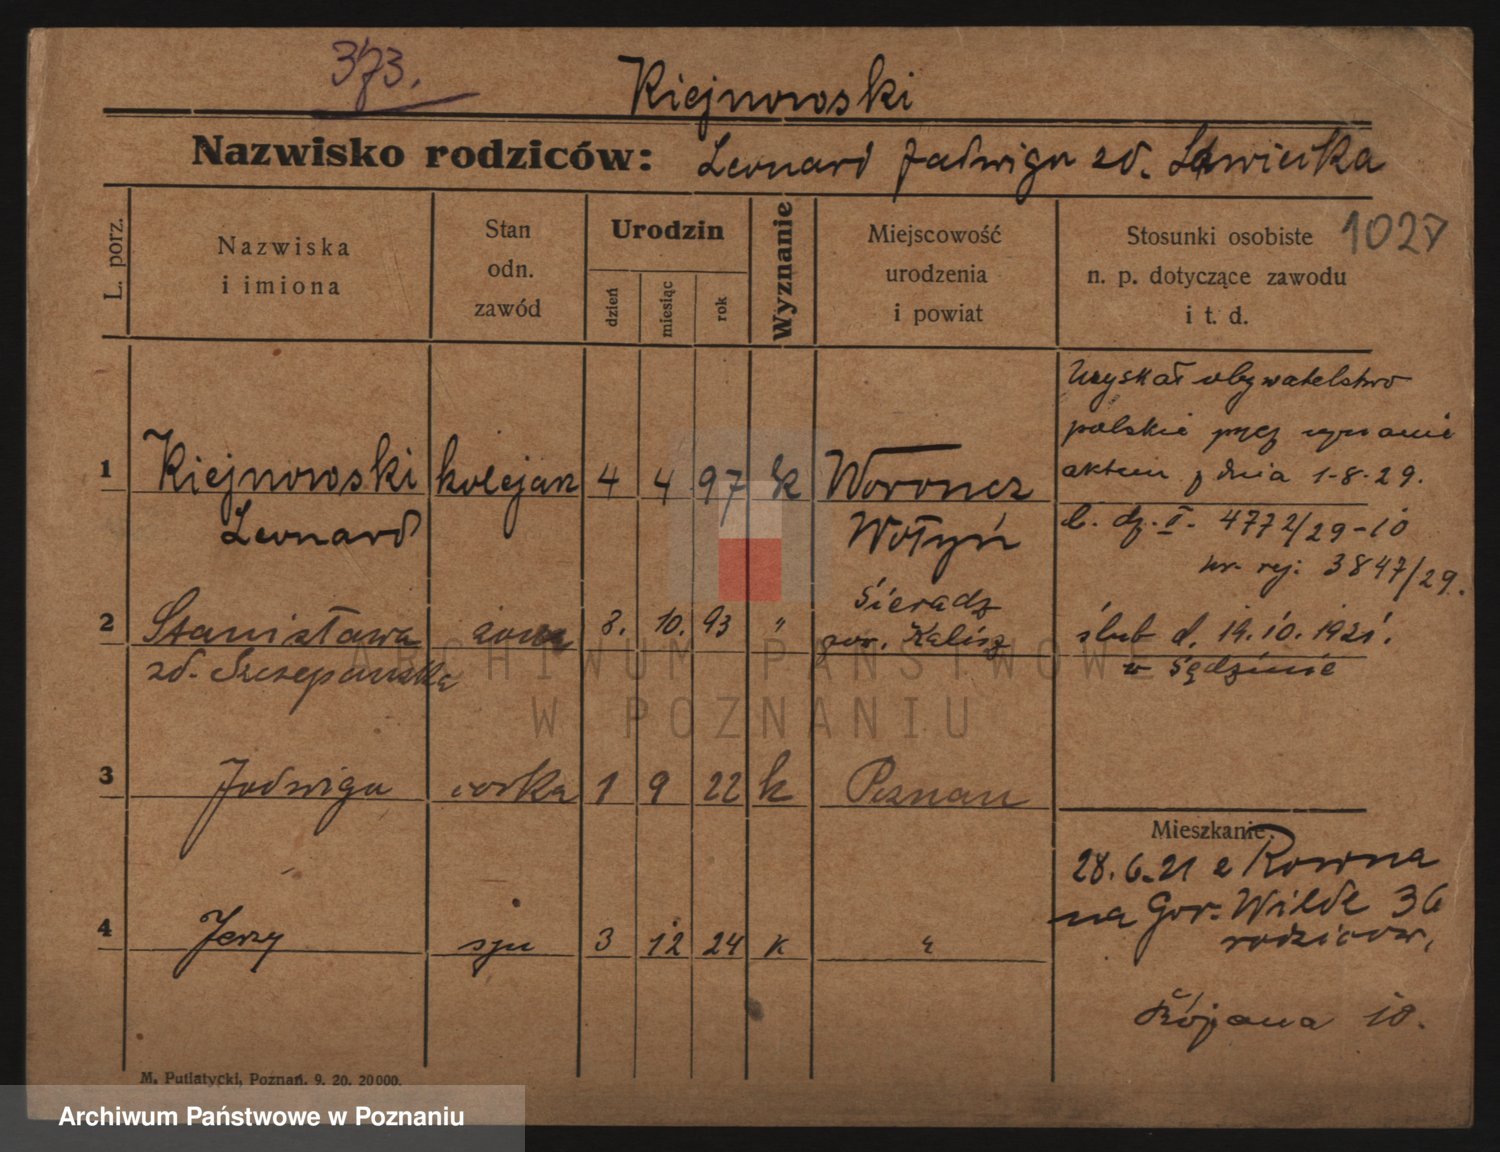 373.
Kiejnowski
Nazwisko rodziców: Leonard Jadwiga zd. Sawicka
L. porz.
Nazwiska
i imiona
Stan
odn.
zawód
Urodzin
dzień
miesiąc
rok
Wyznanie
Miejscowość
urodzenia
i powiat
Stosunki osobiste
n. p. dotyczące zawodu
i t. d.
1027
Uzyskał obywatelstwo
polskie przez uznanie
aktem z dnia 1-8-29.
L. dz. II. 4772/29-10
nr. rej: 3847/29.
1 Kiejnowski kolejarz 4 4 97 rk Woroncz
Leonard Wołyń
2 Stanisława żona 8. 10. 93 " Sieradz
pow. Kalisz
zd. Szczepańska
ślub d. 19.10.1921.
w Sędzinie
ARCHIWUM PAŃSTWOWE
W POZNANIU
3 Jadwiga córka 1 9 22 k Poznań
4 Jerzy syn 3 12 24 k "
Mieszkanie:
28.6.21 z Rowna
na Gór. Wilde 36
rodziców,
Różana 10.
M. Putiatycki, Poznań. 9. 20. 20000.
Archiwum Państwowe w Poznaniu